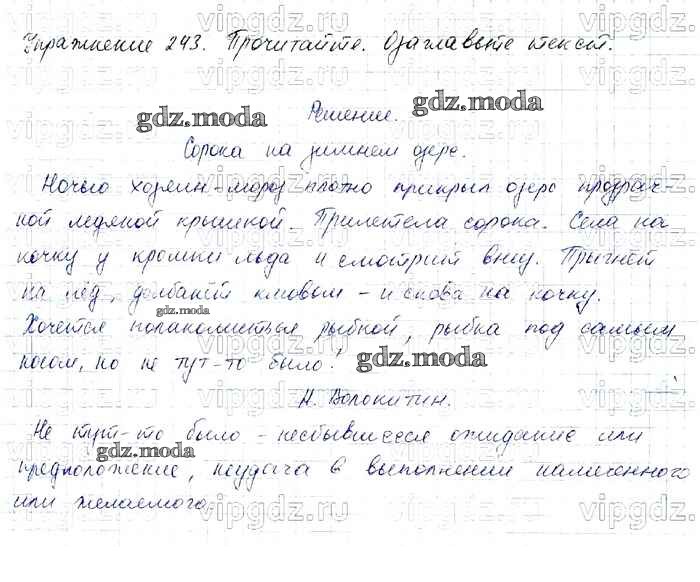 Упражнение 243. Прочитайте. Озаглавьте текст.
Решение.
Сорока на зимнем озере.
Ночью хозяин-мороз плотно прикрыл озеро прозрач-
ной ледяной крышкой. Прилетела сорока. Села на
кочку у кромки льда и смотрит вниз. Прыгнет
на лёд, долбанёт клювом - и снова на кочку.
Хочется полакомиться рыбкой, рыбка под самым
носом, но не тут-то было!
Н. Волокитин.
Не тут-то было - несбывшееся ожидание или
предположение, неудача в выполнении намеченного
или желаемого.
gdz.moda
gdz.moda
gdz.moda
gdz.moda
gdz.moda
vipgdz.ru